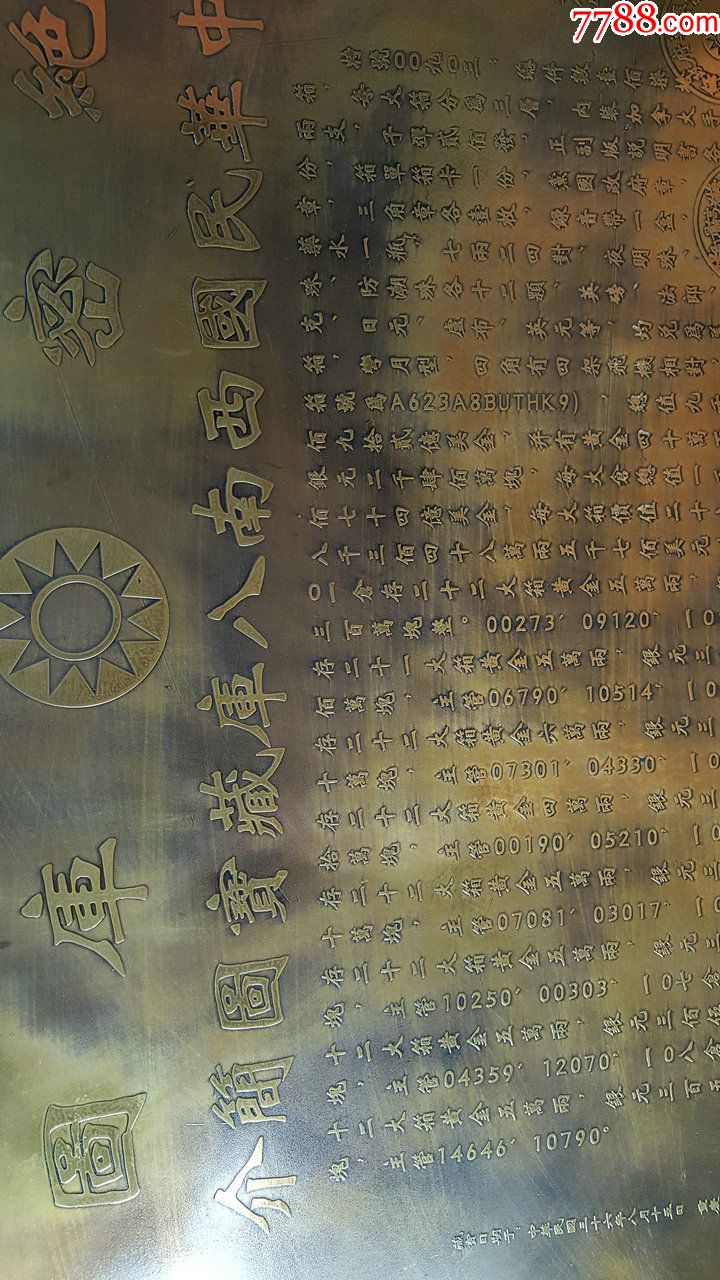 7788.com
絕密庫圖
中華民國西南八庫藏寶圖簡介
特號00九0三，總件數壹佰柒
箱，每大箱分爲三層，內裝加拿大手
兩支，子彈貳佰發，正副版説明書各
份，箱單箱卡一份，黨國政府章，
章，三角章各壹枚，綠吉帶一盒，
藥水一瓶，七兩二四對，夜明珠，
珠，防潮珠各十二顆，英磅，法郎，
克，日元，盧布，英元等，均兌爲美
箱，彎月型，四角有四架飛機相對，
箱號爲A623A8BUTHK9)，總值九千
佰九拾貳億美金，并有黃金四十萬
銀元二千肆佰萬塊，每大倉總值一
佰七十四億美金，每大箱價值二十
八千三佰四十八萬兩五千七佰美元
0一倉存二十二大箱黃金五萬兩，
三百萬塊整。00273′09120′一0
存二十一大箱黃金五萬兩，銀元三
佰萬塊，主管06790′10514′一0
存二十二大箱黃金六萬兩，銀元三
十萬塊，主管07301′04330′一0
存二十二大箱黃金四萬兩，銀元三
拾萬塊，主管00190′05210′一0
存二十二大箱黃金五萬兩，銀元三
十萬塊，主管07081′03017′一0
存二十二大箱黃金五萬兩，銀元三
塊，主管10250′00303′一0七倉
十二大箱黃金五萬兩，銀元三佰伍
塊，主管04359′12070′一0八倉
十二大箱黃金五萬兩，銀元三百五
塊，主管14646′10790°
藏封日期于：中華民國三十六年八月十五日 重慶